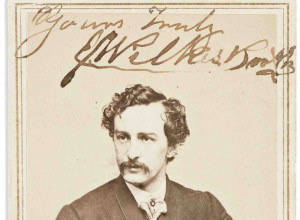 Yours Truly
J. Wilkes Booth